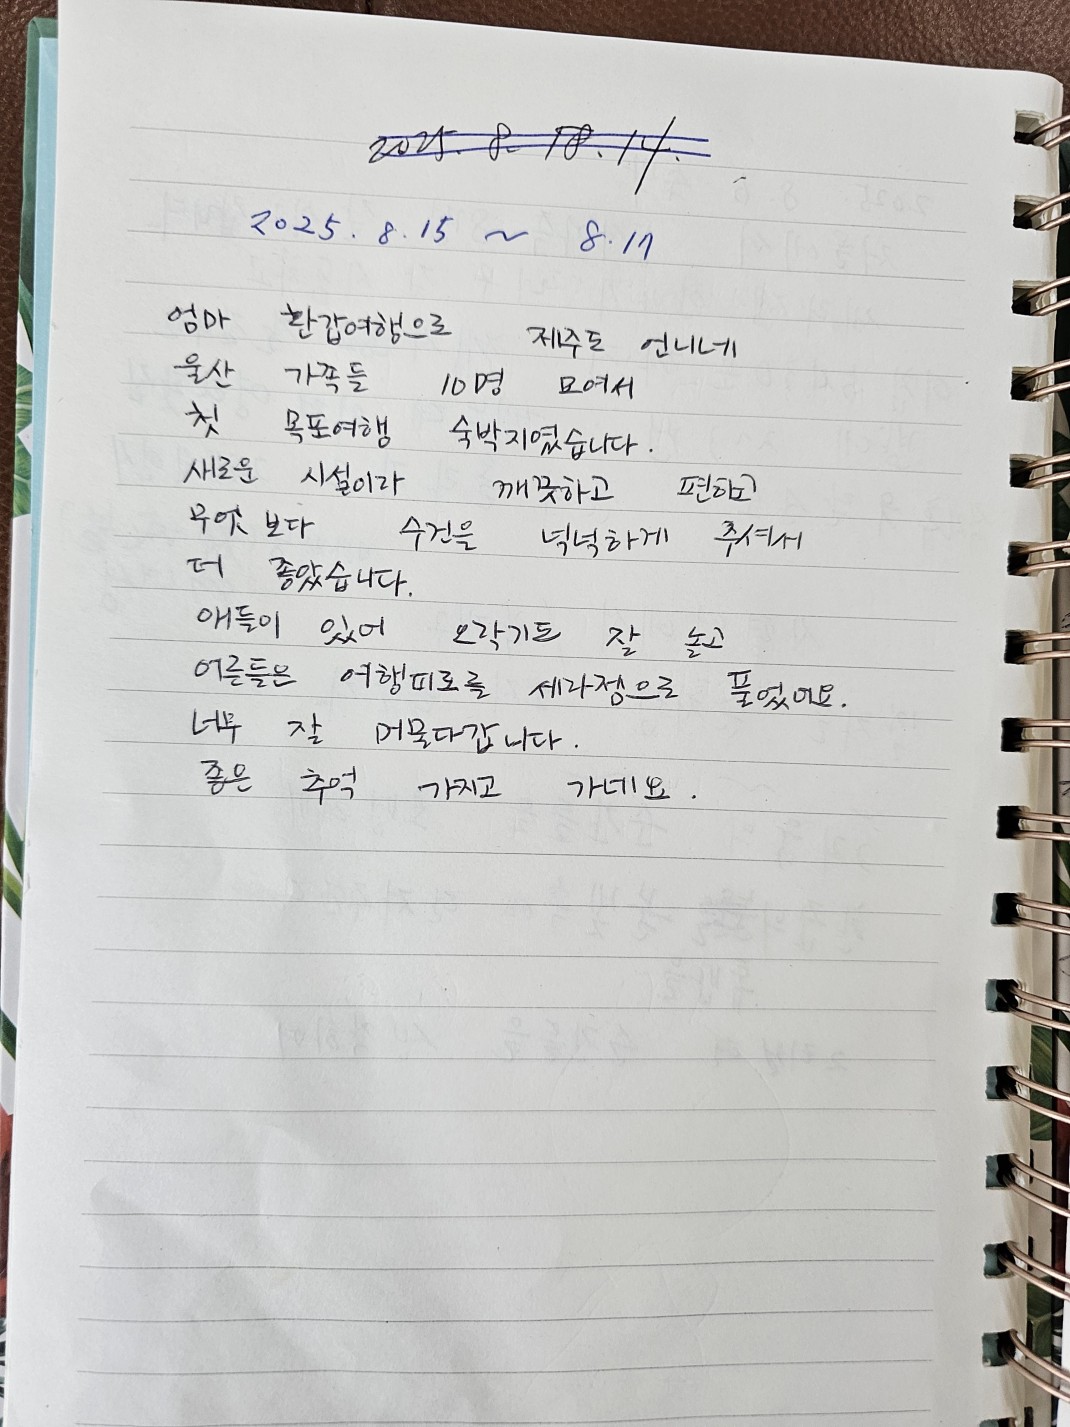 2025. 8. 18. 14.
2025. 8. 15 ~ 8. 17
엄마 환갑여행으로 제주도 언니네
울산 가족들 10명 모여서
첫 목포여행 숙박지였습니다.
새로운 시설이라 깨끗하고 편하고
무엇보다 수건을 넉넉하게 주셔서
더 좋았습니다.
애들이 있어 오락기도 잘 놀고
어른들은 여행피로를 세라젬으로 풀었어요.
너무 잘 머물다갑니다.
좋은 추억 가지고 가네요.